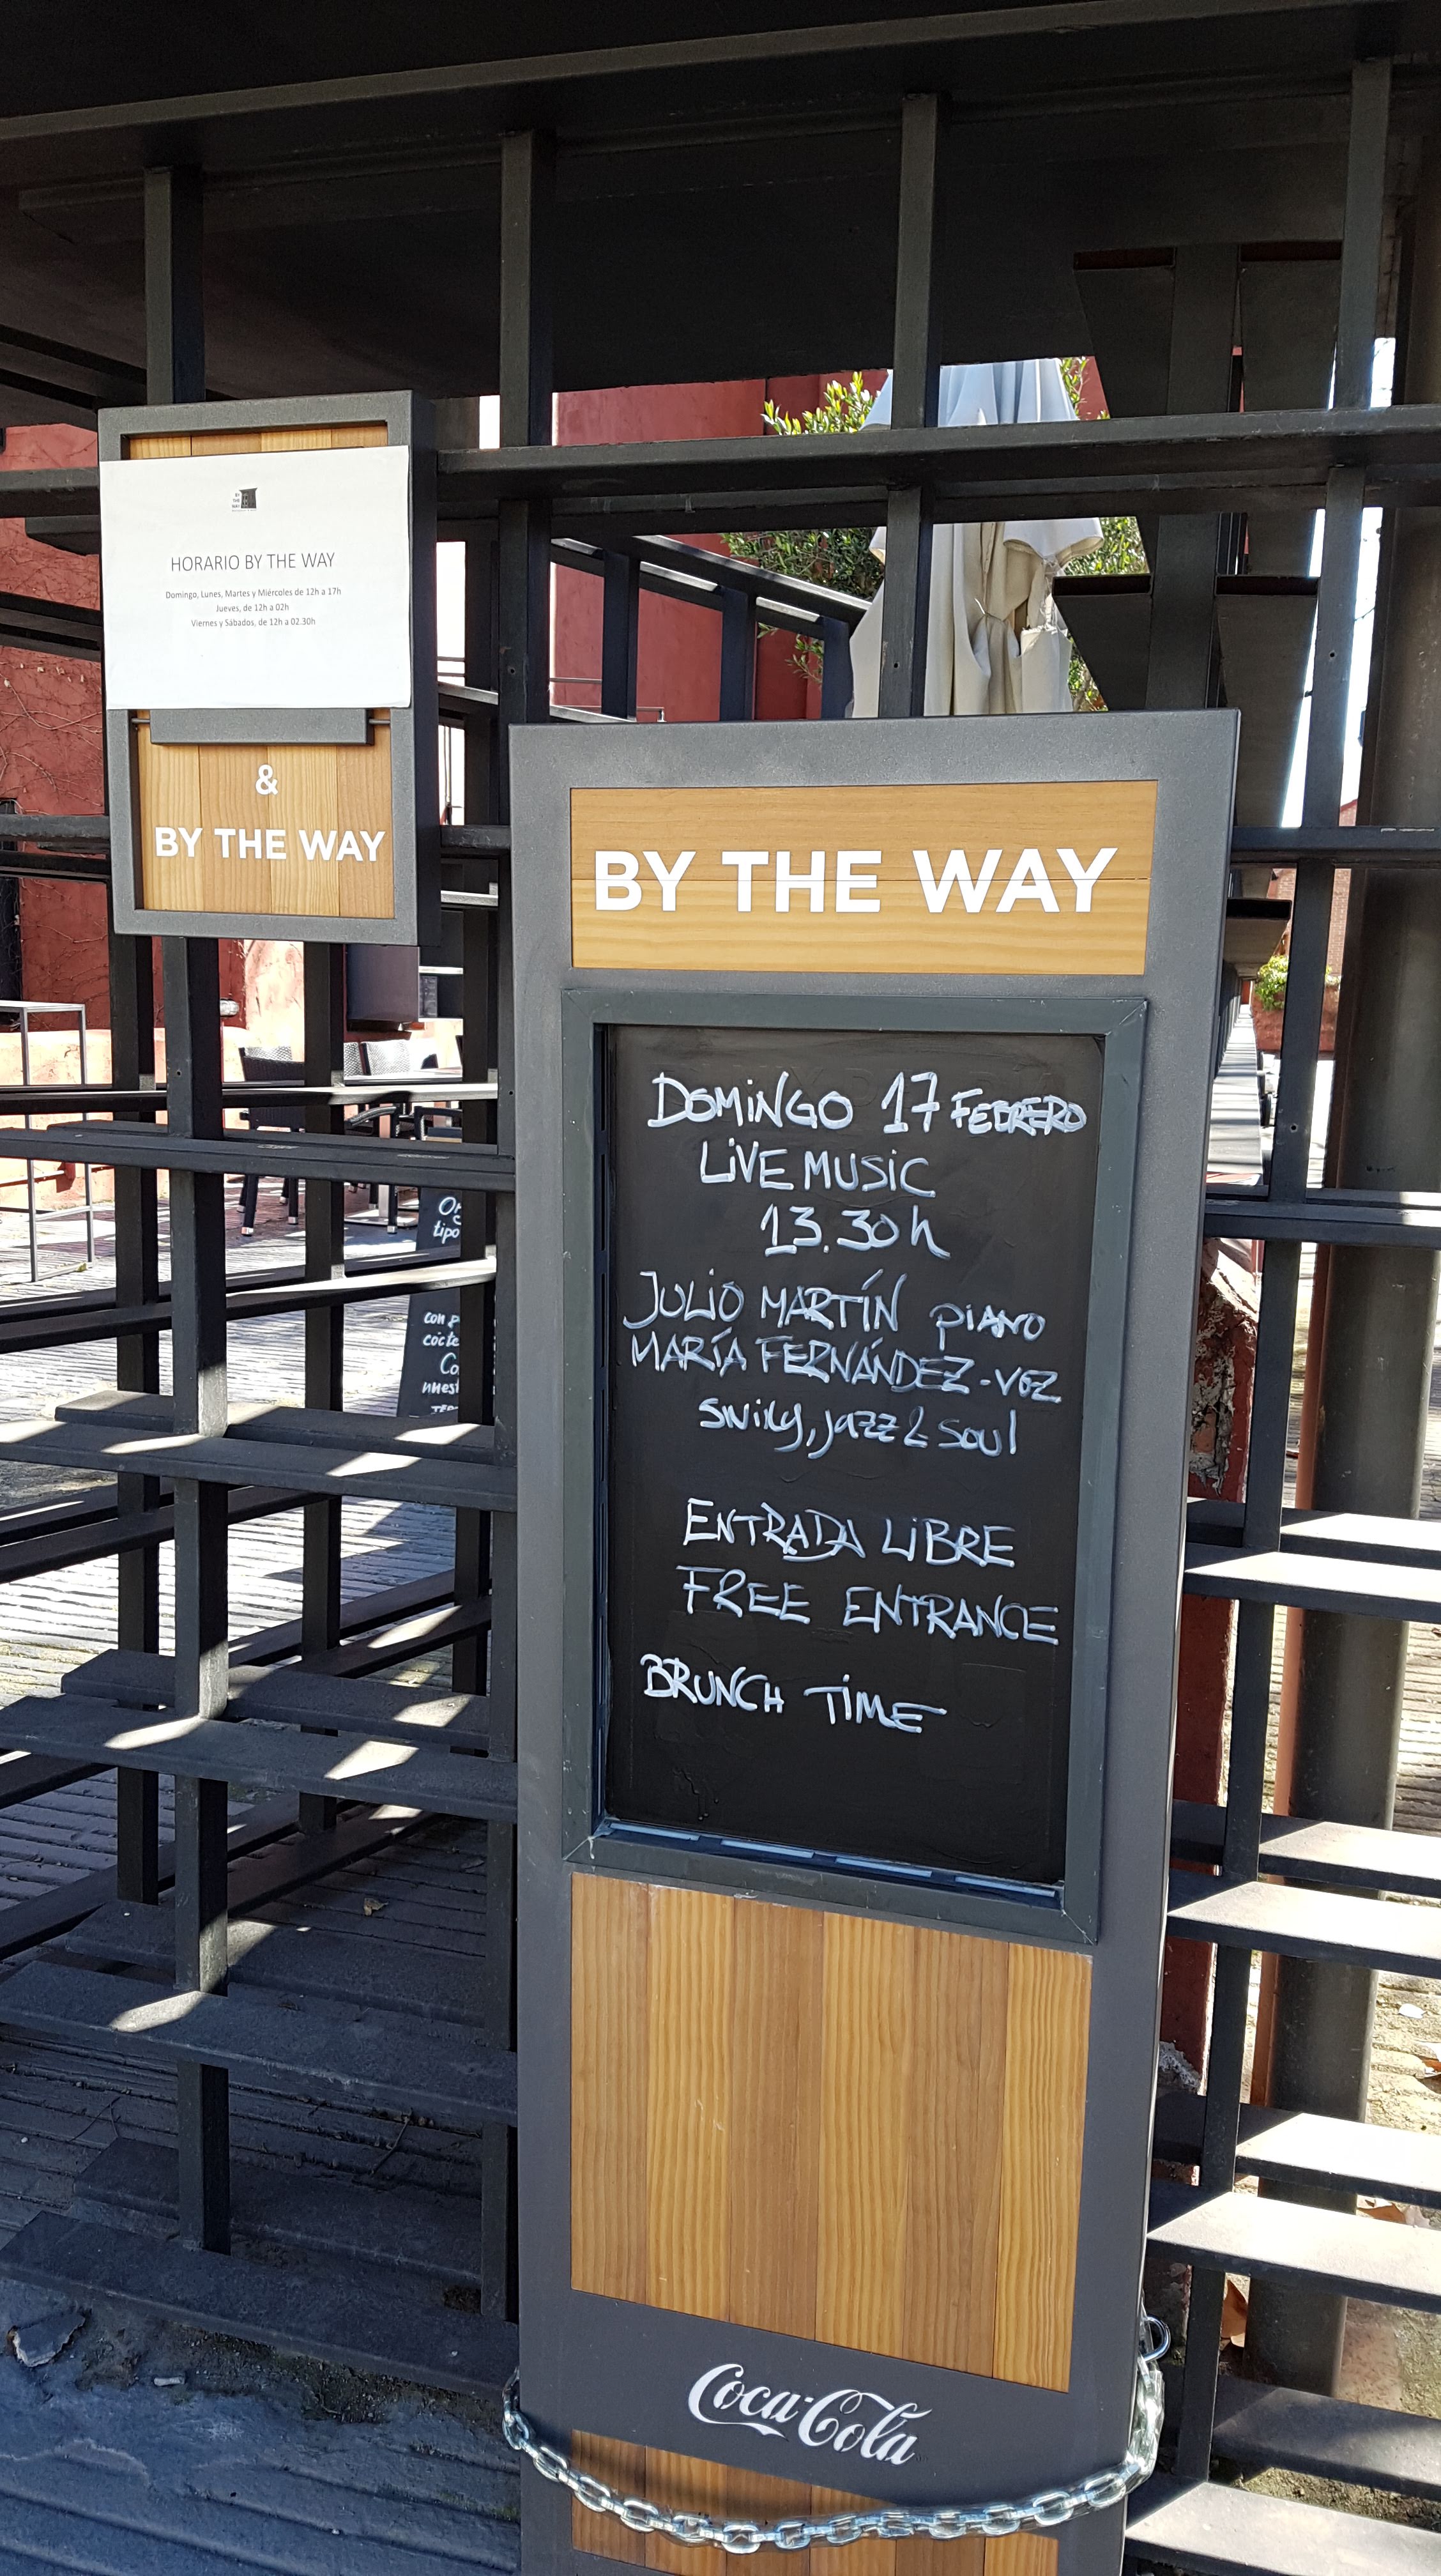 HORARIO BY THE WAY
Domingo, Lunes, Martes y Miércoles de 12h a 17h
Jueves, de 12h a 02h
Viernes y Sábados, de 12h a 02.30h
&
BY THE WAY
BY THE WAY
DOMINGO 17 FEBRERO
LIVE MUSIC
13.30h
JULIO MARTÍN PIANO
MARÍA FERNÁNDEZ-VOZ
swing, jazz & soul
ENTRADA LIBRE
FREE ENTRANCE
BRUNCH TIME
Coca-Cola
tipo
con